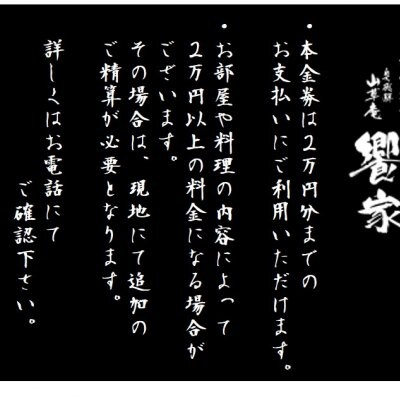 奥飛騨
山草庵
饗家
・本金券は2万円分までの
お支払いにご利用いただけます。
・お部屋や料理の内容によって
2万円以上の料金になる場合が
ございます。
その場合は、現地にて追加の
ご精算が必要となります。
詳しくはお電話にて
ご確認下さい。